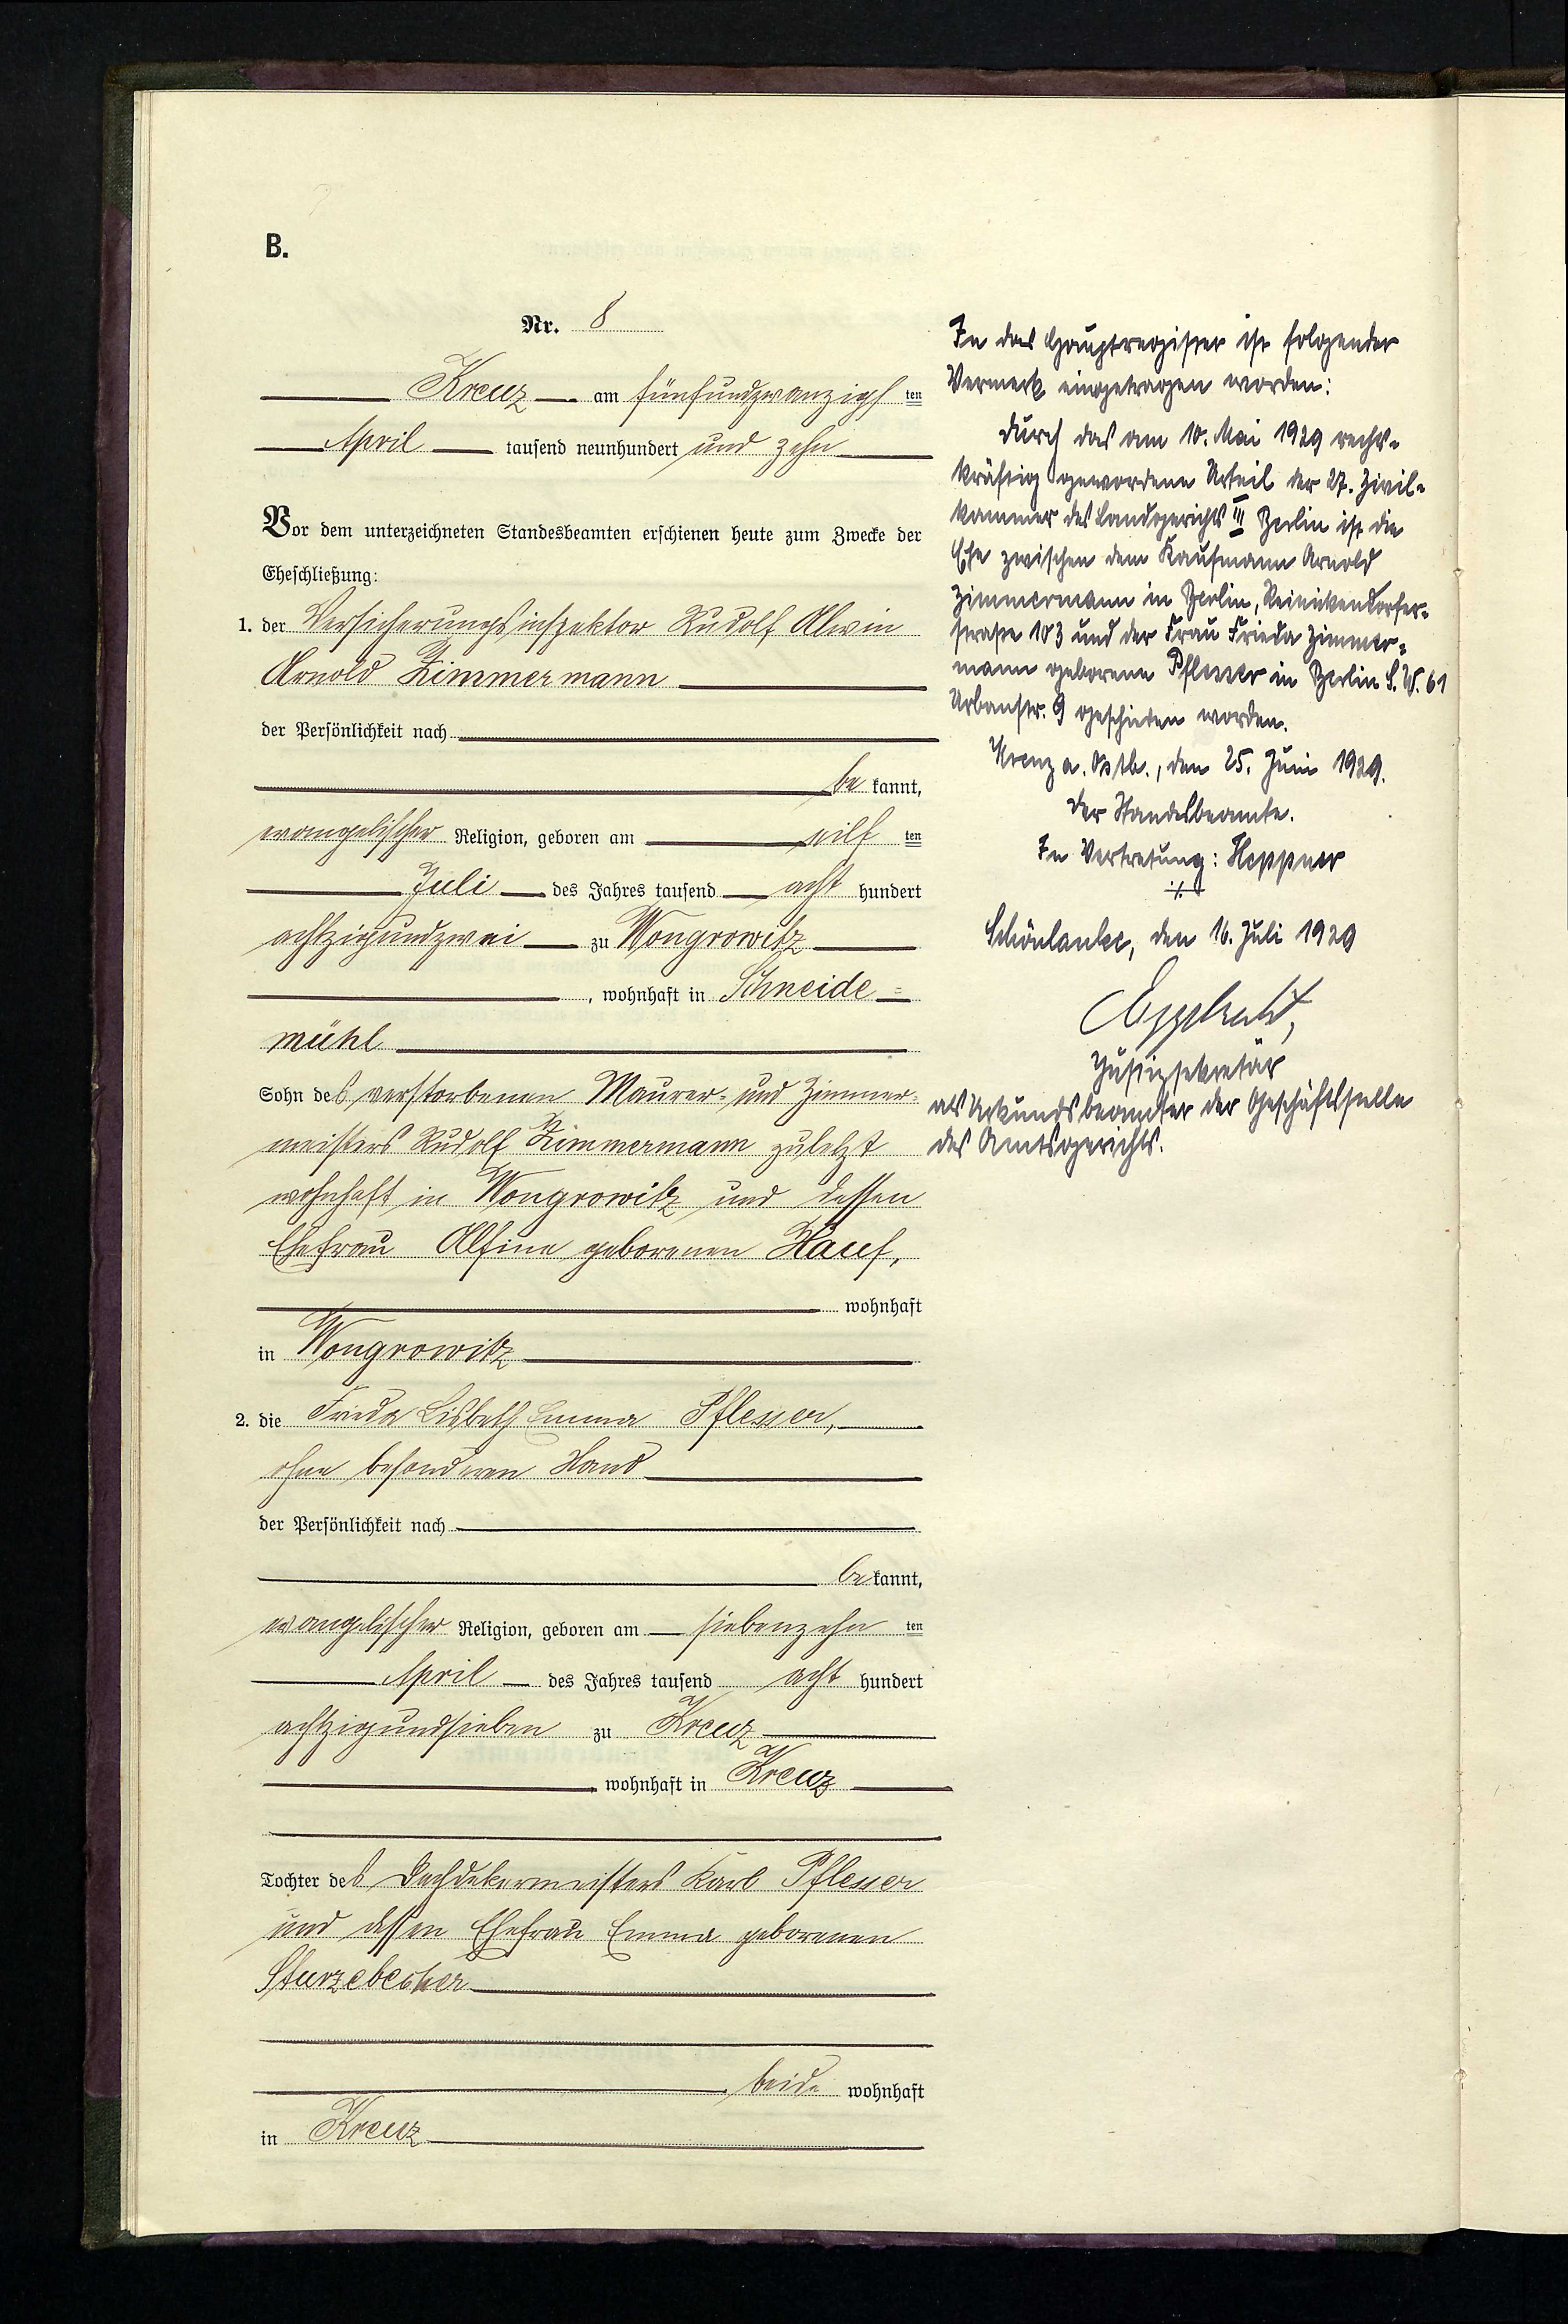 B.
Nr. 8
Kreuz am fünfundzwanzigsten
April tausend neunhundert und zehn
Vor dem unterzeichneten Standesbeamten erschienen heute zum Zwecke der
Eheschließung:
1. der Versicherungsinspektor Rudolf Alwin
Arnold Zimmermann
der Persönlichkeit nach
be kannt,
evangelischer Religion, geboren am eilf ten
Juli des Jahres tausend acht hundert
achtzigundzwei zu Wongrowitz
, wohnhaft in Schneide=
mühl
Sohn des verstorbenen Maurer- und Zimmer-
meisters Rudolf Zimmermann zuletzt
wohnhaft in Wongrowitz und dessen
Ehefrau geborenen
wohnhaft
in Wongrowitz
2. die Frieda Lisbeth Emma Plesser,
ohne besonderen Stand
der Persönlichkeit nach
be kannt,
evangelischer Religion, geboren am siebenzehn ten
April des Jahres tausend acht hundert
achtzigundsieben zu Kreuz
wohnhaft in Kreuz
Tochter des Dachdekermeisters Karl Pflesser
und dessen Ehefrau Emma geborenen
Sturzebecher
beide wohnhaft
in Kreuz
In das Hauptregister ist folgender
Vermerk eingetragen worden:
Durch das am 10. Mai 1929 rechts-
kräftig gewordene Urteil der 27. Zivil-
kammer des Landgerichts III Berlin ist die
Ehe zwischen dem Kaufmann Arnold
Zimmermann in Berlin, Reinickendorfer-
straße 103 und der Frau Frieda Zimmer-
mann geborene Pflesser in Berlin S.W. 61
Urbanstr. 9 geschieden worden.
Kreuz a. Ostb., den 25. Juni 1929.
Der Standesbeamte.
In Vertretung: Heppner
./.
Schönlanke, den 16. Juli 1929
Justizsekretär
als Urkundsbeamter der Geschäftsstelle
des Amtsgerichts.